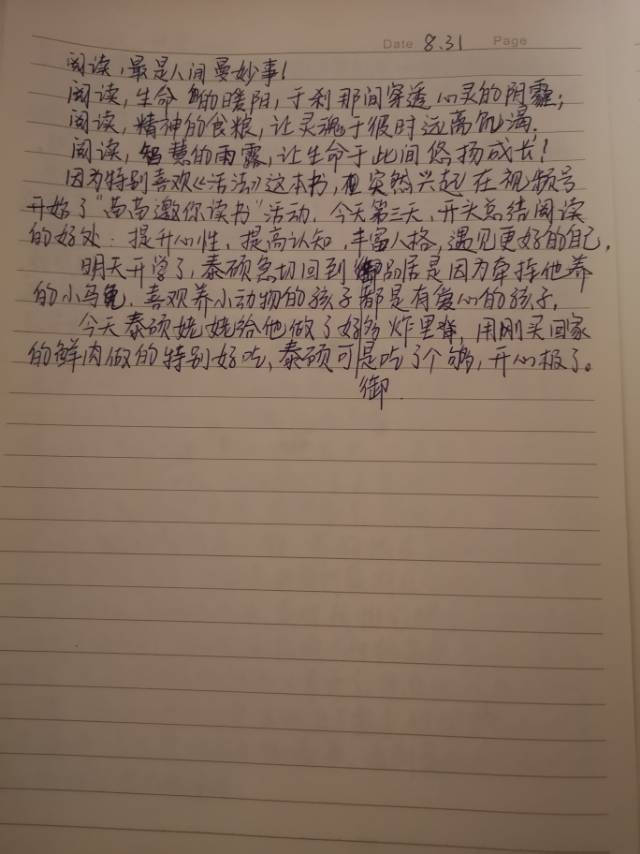 Date 8.31 Page
阅读,最是人间曼妙事!
阅读,生命的暖阳,于刹那间穿透心灵的阴霾;
阅读,精神的食粮,让灵魂于彼时远离饥渴.
阅读,智慧的雨露,让生命于此间悠扬成长!
因为特别喜欢《活法》这本书,突然兴起在视频号
开始了“苗苗邀你读书”活动.今天第三天,开头总结阅读
的好处:提升心性、提高认知,丰富人格,遇见更好的自己,
明天开学了,泰硕急切回到御别居是因为牵挂他养
的小乌龟.喜欢养小动物的孩子都是有爱心的孩子.
今天泰硕姥姥给他做了好多炸里脊,用刚买回家
的鲜肉做的特别好吃,泰硕可是吃了个够,开心极了。
御